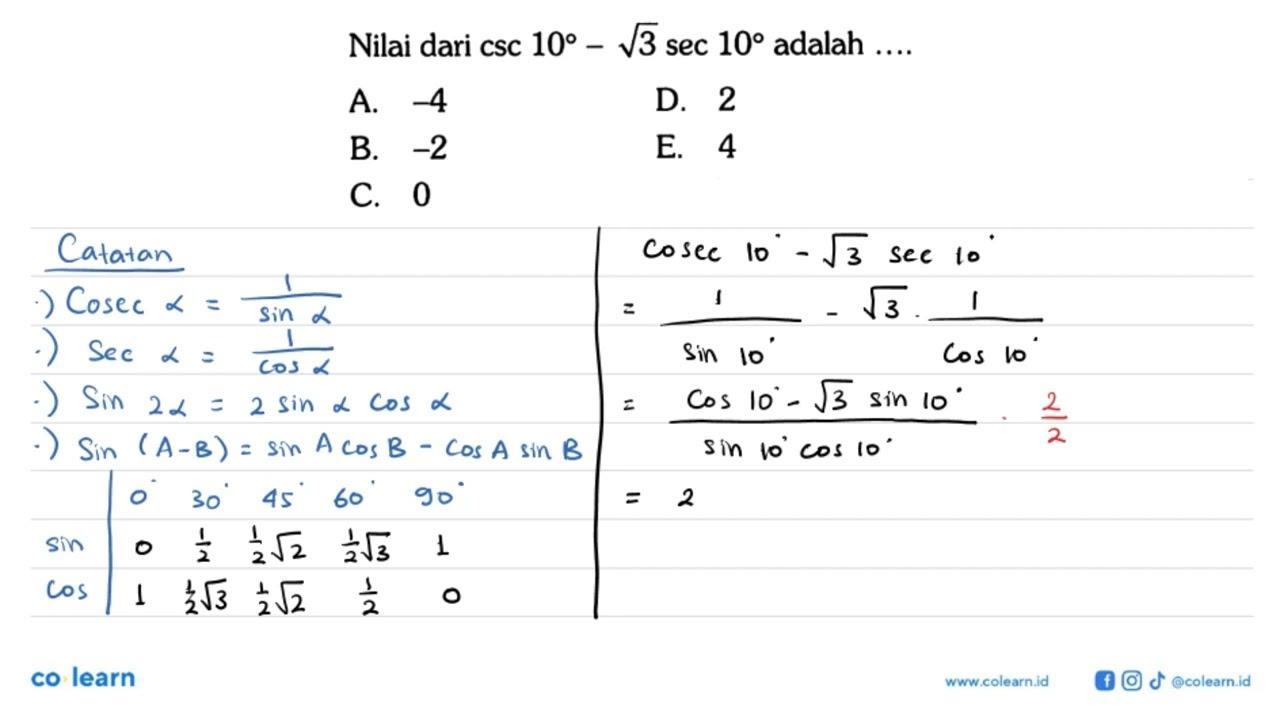 Nilai dari csc 10° – √3 sec 10° adalah ....
A. –4
B. –2
C. 0
D. 2
E. 4
Catatan
·) Cosec α = 1/sin α
·) Sec α = 1/cos α
·) Sin 2α = 2 sin α cos α
·) Sin (A-B) = sin A cos B - cos A sin B
0° 30° 45° 60° 90°
sin 0 1/2 1/2√2 1/2√3 1
cos 1 1/2√3 1/2√2 1/2 0
cosec 10° - √3 sec 10°
= 1/sin 10° - √3 . 1/cos 10°
= cos 10° - √3 sin 10°/sin 10° cos 10° . 2/2
= 2
co learn
www.colearn.id
@colearn.id